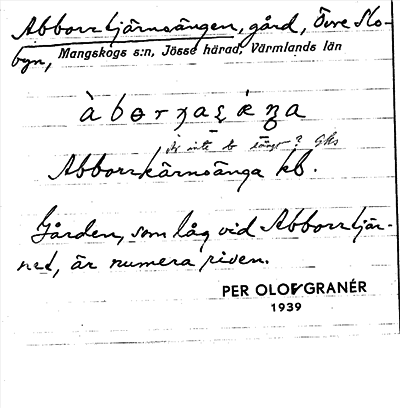 Abborrtjärnsängen, gård, Övre Slo-
byn, Mangskogs s:n, Jösse härad, Värmlands län
är inte b långt? Gks
Abborrkärnsänga kb.
Gården, som låg vid Abborrtjär-
net, är numera riven.
PER OLOF GRANÉR
1939